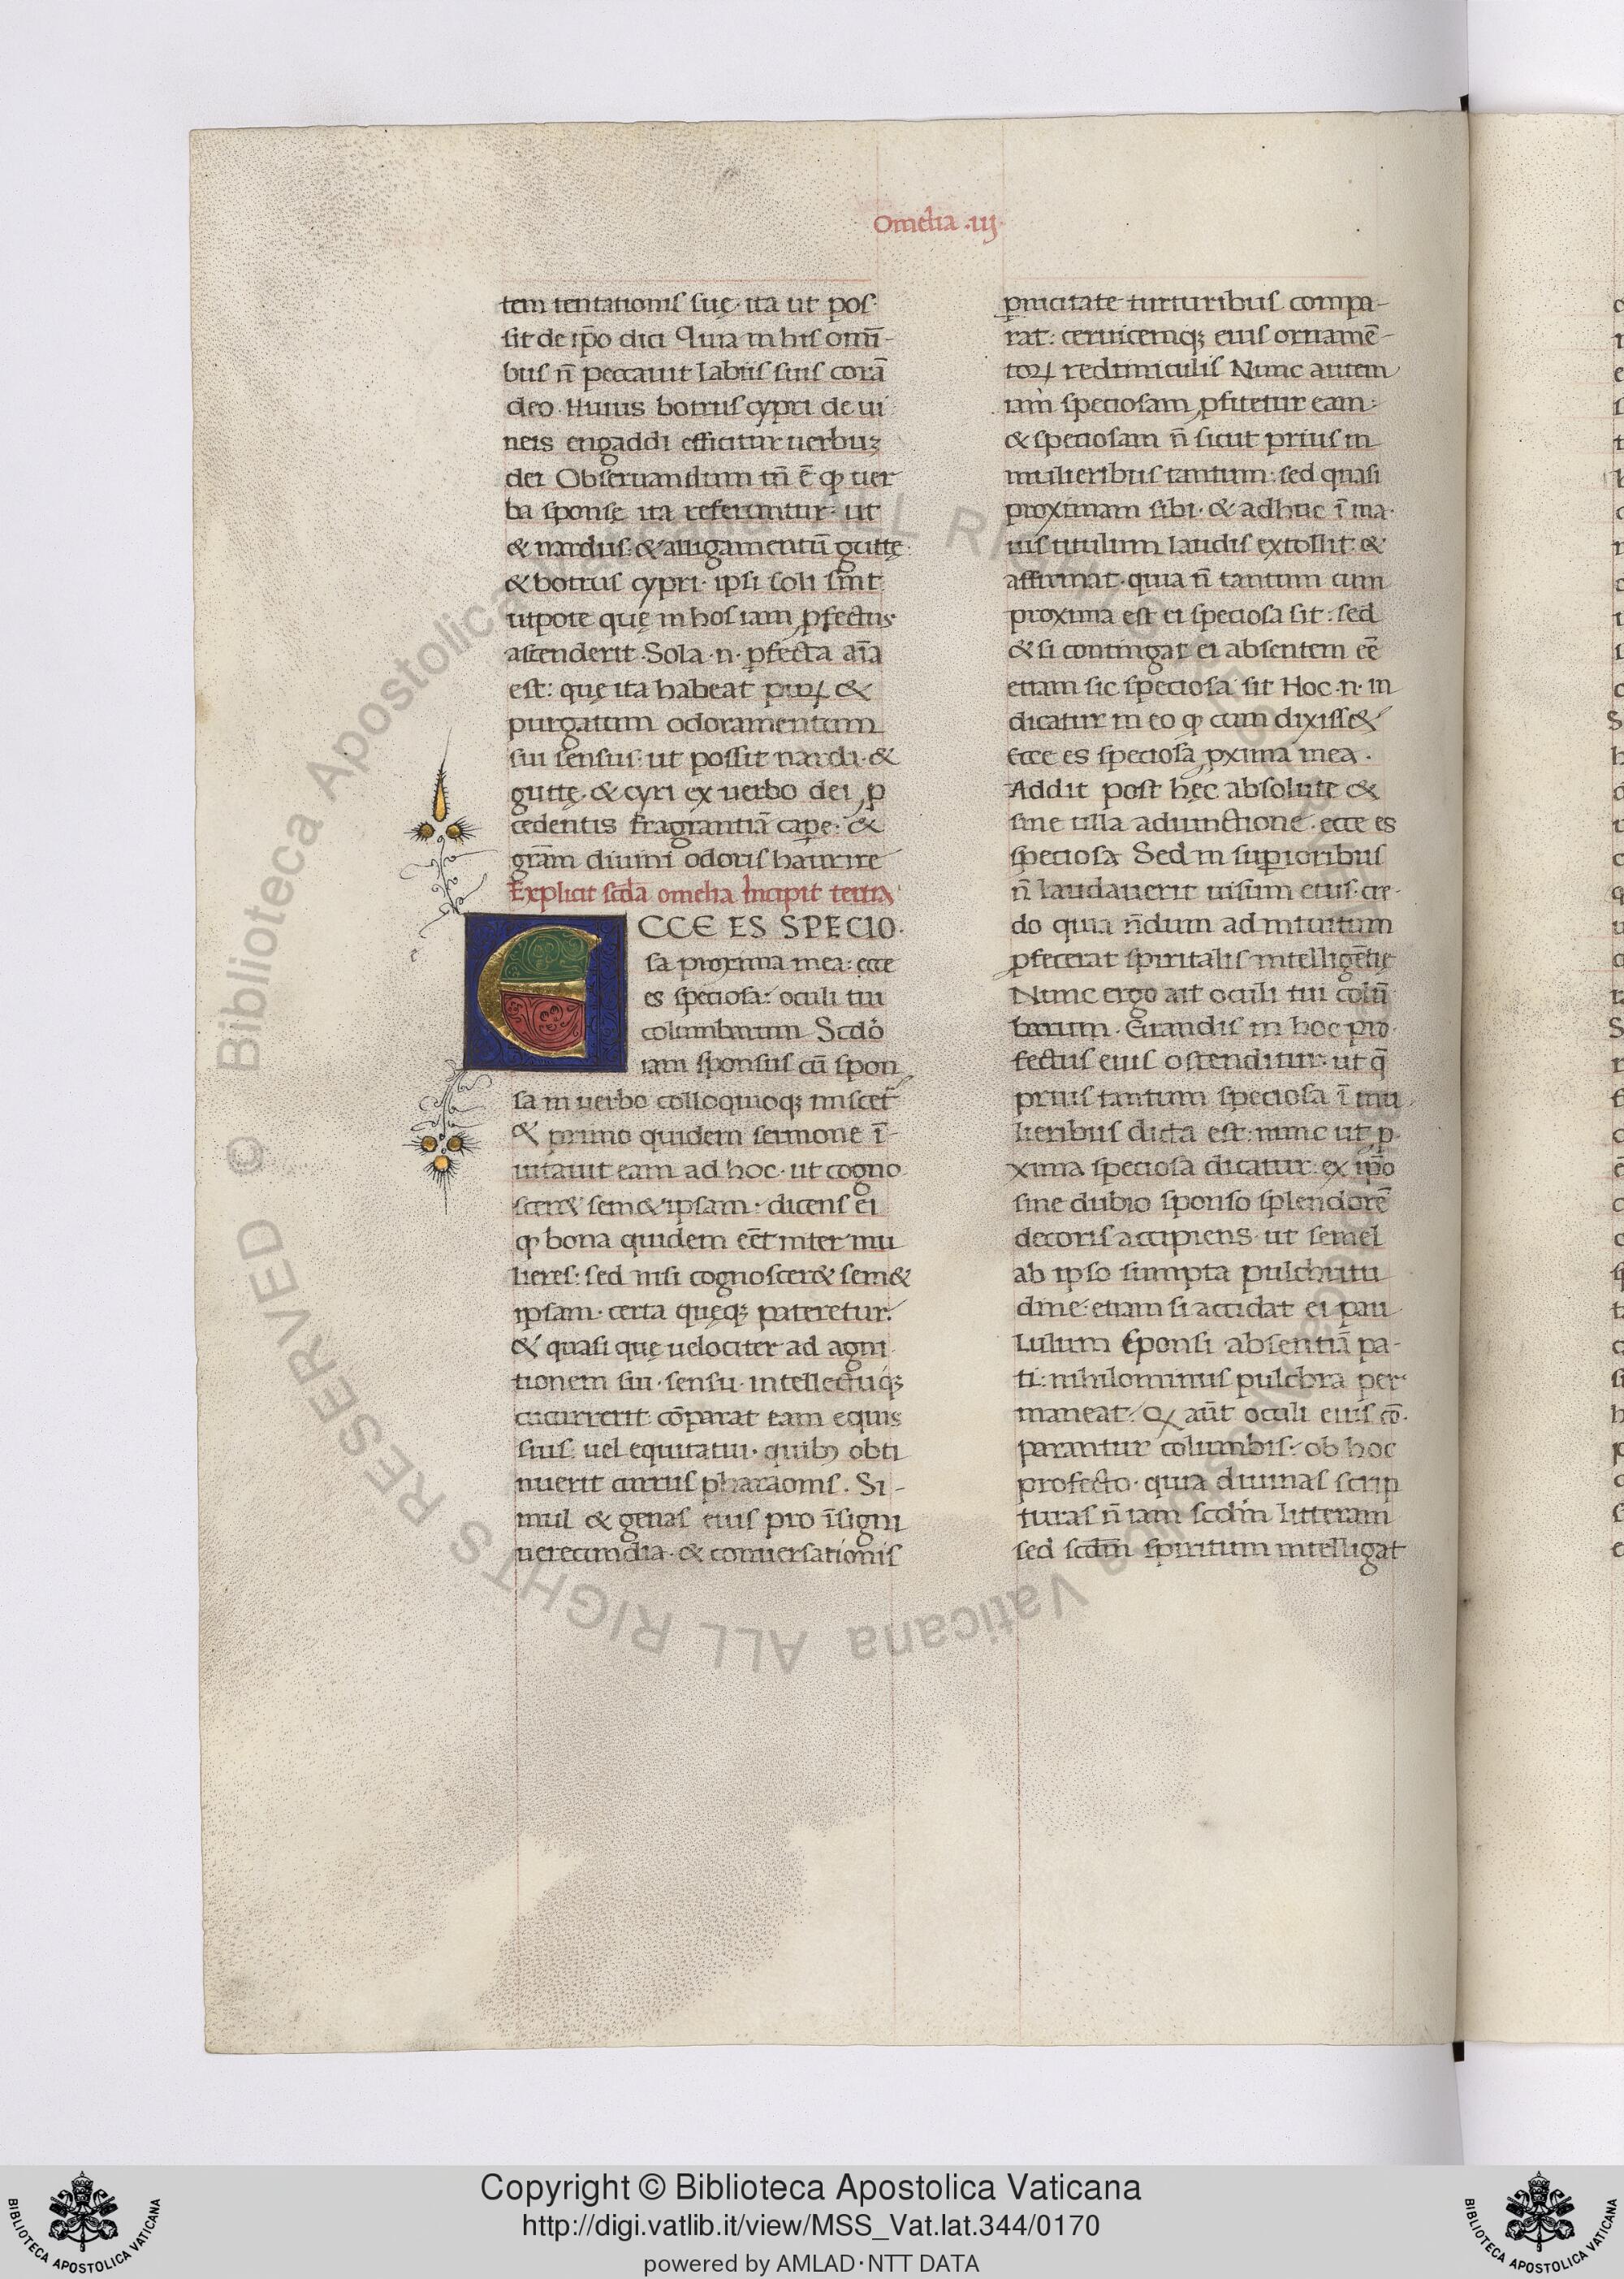 Omelia .iij.
tem tentationis suę. ita ut pos
sit de ip̄o dici Quia in his omī-
bus n̄ peccauit labiis suis corā
deo. Huius botrus cypri de ui
neis engaddi efficitur uerbuꝫ
dei Obseruandum tn̄ ē ꝙ uer
ba sponsę ita referuntur. ut
& nardus: & alligamentū guttę
& botrus cypri. ipsi soli sint
utpote quę in hos iam ꝓfectus
ascenderit. Sola .n. ꝑfecta aīa
est: quę ita habeat puꝝ &
purgatum odoramentum
sui sensus: ut possit nardi. &
guttę. & cyri ex uerbo dei ꝓ
cedentis fragrantiā capere. &
grām diuini odoris haurire
Explicit scd̄a omelia Incipit tertia
ECCE ES SPECIO.
sa proxima mea: ecce
es speciosa: oculi tui
columbarum Scdo
iam sponsus cū spon
sa in uerbo colloquioqꝫ miscet̄
& primo quidem sermone ī-
uitauit eam ad hoc. ut cogno
scer& sem&ipsam. dicens ei
ꝙ bona quidem eēt inter mu
lieres: sed nisi cognoscer& sem&
ipsam. certa quęqꝫ pateretur.
& quasi quę uelociter ad agni
tionem sui. sensu. intellectuqꝫ
cucurrerit: cōparat eam equis
suis. uel equitatui. quibꝰ obti
nuerit currus pharaonis. Si-
mul & genas eius pro īsigni
uerecundia. & conuersationis
ꝑnicitate turturibus compa-
rat: ceruicemqꝫ eius ornamē-
toꝝ redimiculis Nunc autem
iam speciosam ꝓfitetur eam:
& speciosam n̄ sicut prius in
mulieribus tantum: sed quasi
proximam sibi. & adhuc ī ma
ius titulum laudis extollit: &
affirmat. quia n̄ tantum cum
proxima est ei speciosa sit: sed
& si contingat ei absentem eē
etiam sic speciosa sit Hoc .n. in
dicatur in eo ꝙ cum dixiss&
ecce es speciosa ꝓxima mea.
Addit post hęc absolute &
sine ulla adiunctione. ecce es
speciosa Sed in superioribus
n̄ laudauerit uisum eius. cre-
do quia n̄dum ad intuitum
ꝓfecerat spiritalis intelligētię
Nunc ergo ait oculi tui colū
barum. Grandis in hoc pro
fectus eius ostenditur. ut q̄
prius tantum speciosa ī mu
lieribus dicta est: nunc ut ꝓ
xima speciosa dicatur: ex ip̄o
sine dubio sponso splendorē
decoris accipiens. ut semel
ab ipso sumpta pulchritu
dine. etiam si accidat ei pau
lulum sponsi absentiā pa-
ti: nihilominus pulchra per
maneat. Qꝫ aūt oculi eius cō
parantur columbis: ob hoc
profecto. quia diuinas scrip
turas n̄ iam scdm̄ litteram
sed scdm̄ spiritum intelligat
© Biblioteca Apostolica Vaticana ALL RIGHTS RESERVED
Copyright © Biblioteca Apostolica Vaticana
http://digi.vatlib.it/view/MSS_Vat.lat.344/0170
powered by AMLAD·NTT DATA
BIBLIOTECA APOSTOLICA VATICANA
BIBLIOTECA APOSTOLICA VATICANA